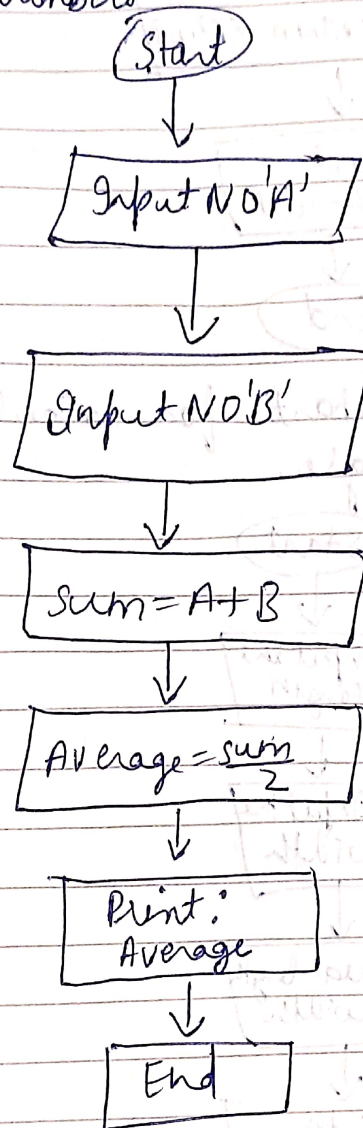 Start
Input NO 'A'
Input NO 'B'
sum = A + B
Average = sum/2
Print:
Average
End